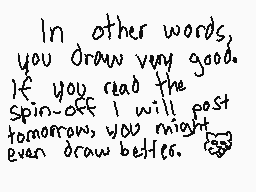 In other words,
you draw very good.
If you read the
spin-off I will post
tomorrow, you might
even draw better.